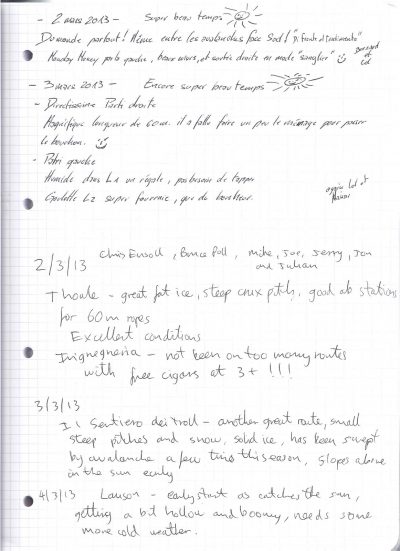 - 2 mars 2013 - Super beau temps
Du monde partout! Même entre les avalanches face Sud!
Monday Money partie gauche, beaux murs, et sortie droite en mode "sanglier"
- 3 mars 2013 - Encore super beau temps
- Direttissima Partie droite
Magnifique longueur de 60m. il a fallu faire un peu le ménage pour passer
le bouchon.
- Patri gauche
Humide dans L1 un régale, pas besoin de tapper
Goulotte L2 super fournie, que du bonheur.
2/3/13 Chris Ensoll, Bruce Poll, Mike, Joe, Jerry, Jon
and Julian
Thoule - great fat ice, steep crux pitch, good ab stations
for 60m ropes
Excellent conditions
- not keen on too many routes
with free cigars at 3+ !!!
3/3/13
Il Sentiero dei troll - another great route, small
steep pitches and snow, solid ice, has been swept
by avalanche a few times this season, slopes above
in the sun early
4/3/13 Lauson - early start as catches the sun,
getting a bit hollow and boomy, needs some
more cold weather.